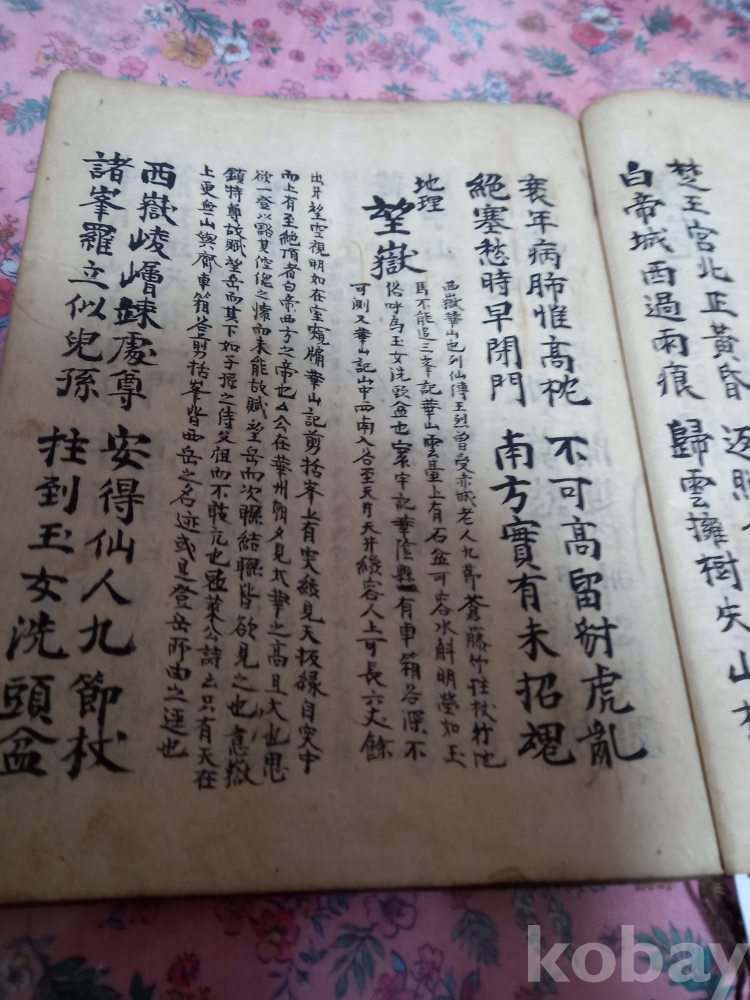 楚王宮北正黃昏
白帝城西過雨痕
返照
歸雲擁樹失山村
衰年病肺惟高枕
絕塞愁時早閉門
不可高留豺虎亂
南方實有未招魂
地理
望嶽
西嶽華山也列仙傳王烈曾受赤城老人九節蒼藤竹拄杖竹池
馬不能追三峯記華山雲臺上有石盆可容水斛明瑩如玉
俗呼為玉女洗頭盆也寰宇記華陰縣有車箱谷深不
可測又華山記山中西南入谷至天井天井纔容人上可長六丈餘
出井望空視明如在室窺牖華山記剪括峯上有穴纔見天扳緣自穴中
而上有至絕頂者白帝西方之帝也公在華州朝夕見太華之高且大也思
欲一登以豁其倥傯之懷而未能故賦望岳而次聯結聯皆欲見之也意嶽
鎮特尊故賦望岳而其下如子孫之侍父祖而不敢亢也冦萊公詩云只有天在
上更無山與齊車箱谷剪括峯皆西岳之名迹或是登岳所由之逕也
西嶽崚嶒竦處尊
諸峯羅立似兒孫
安得仙人九節杖
拄到玉女洗頭盆
kobay